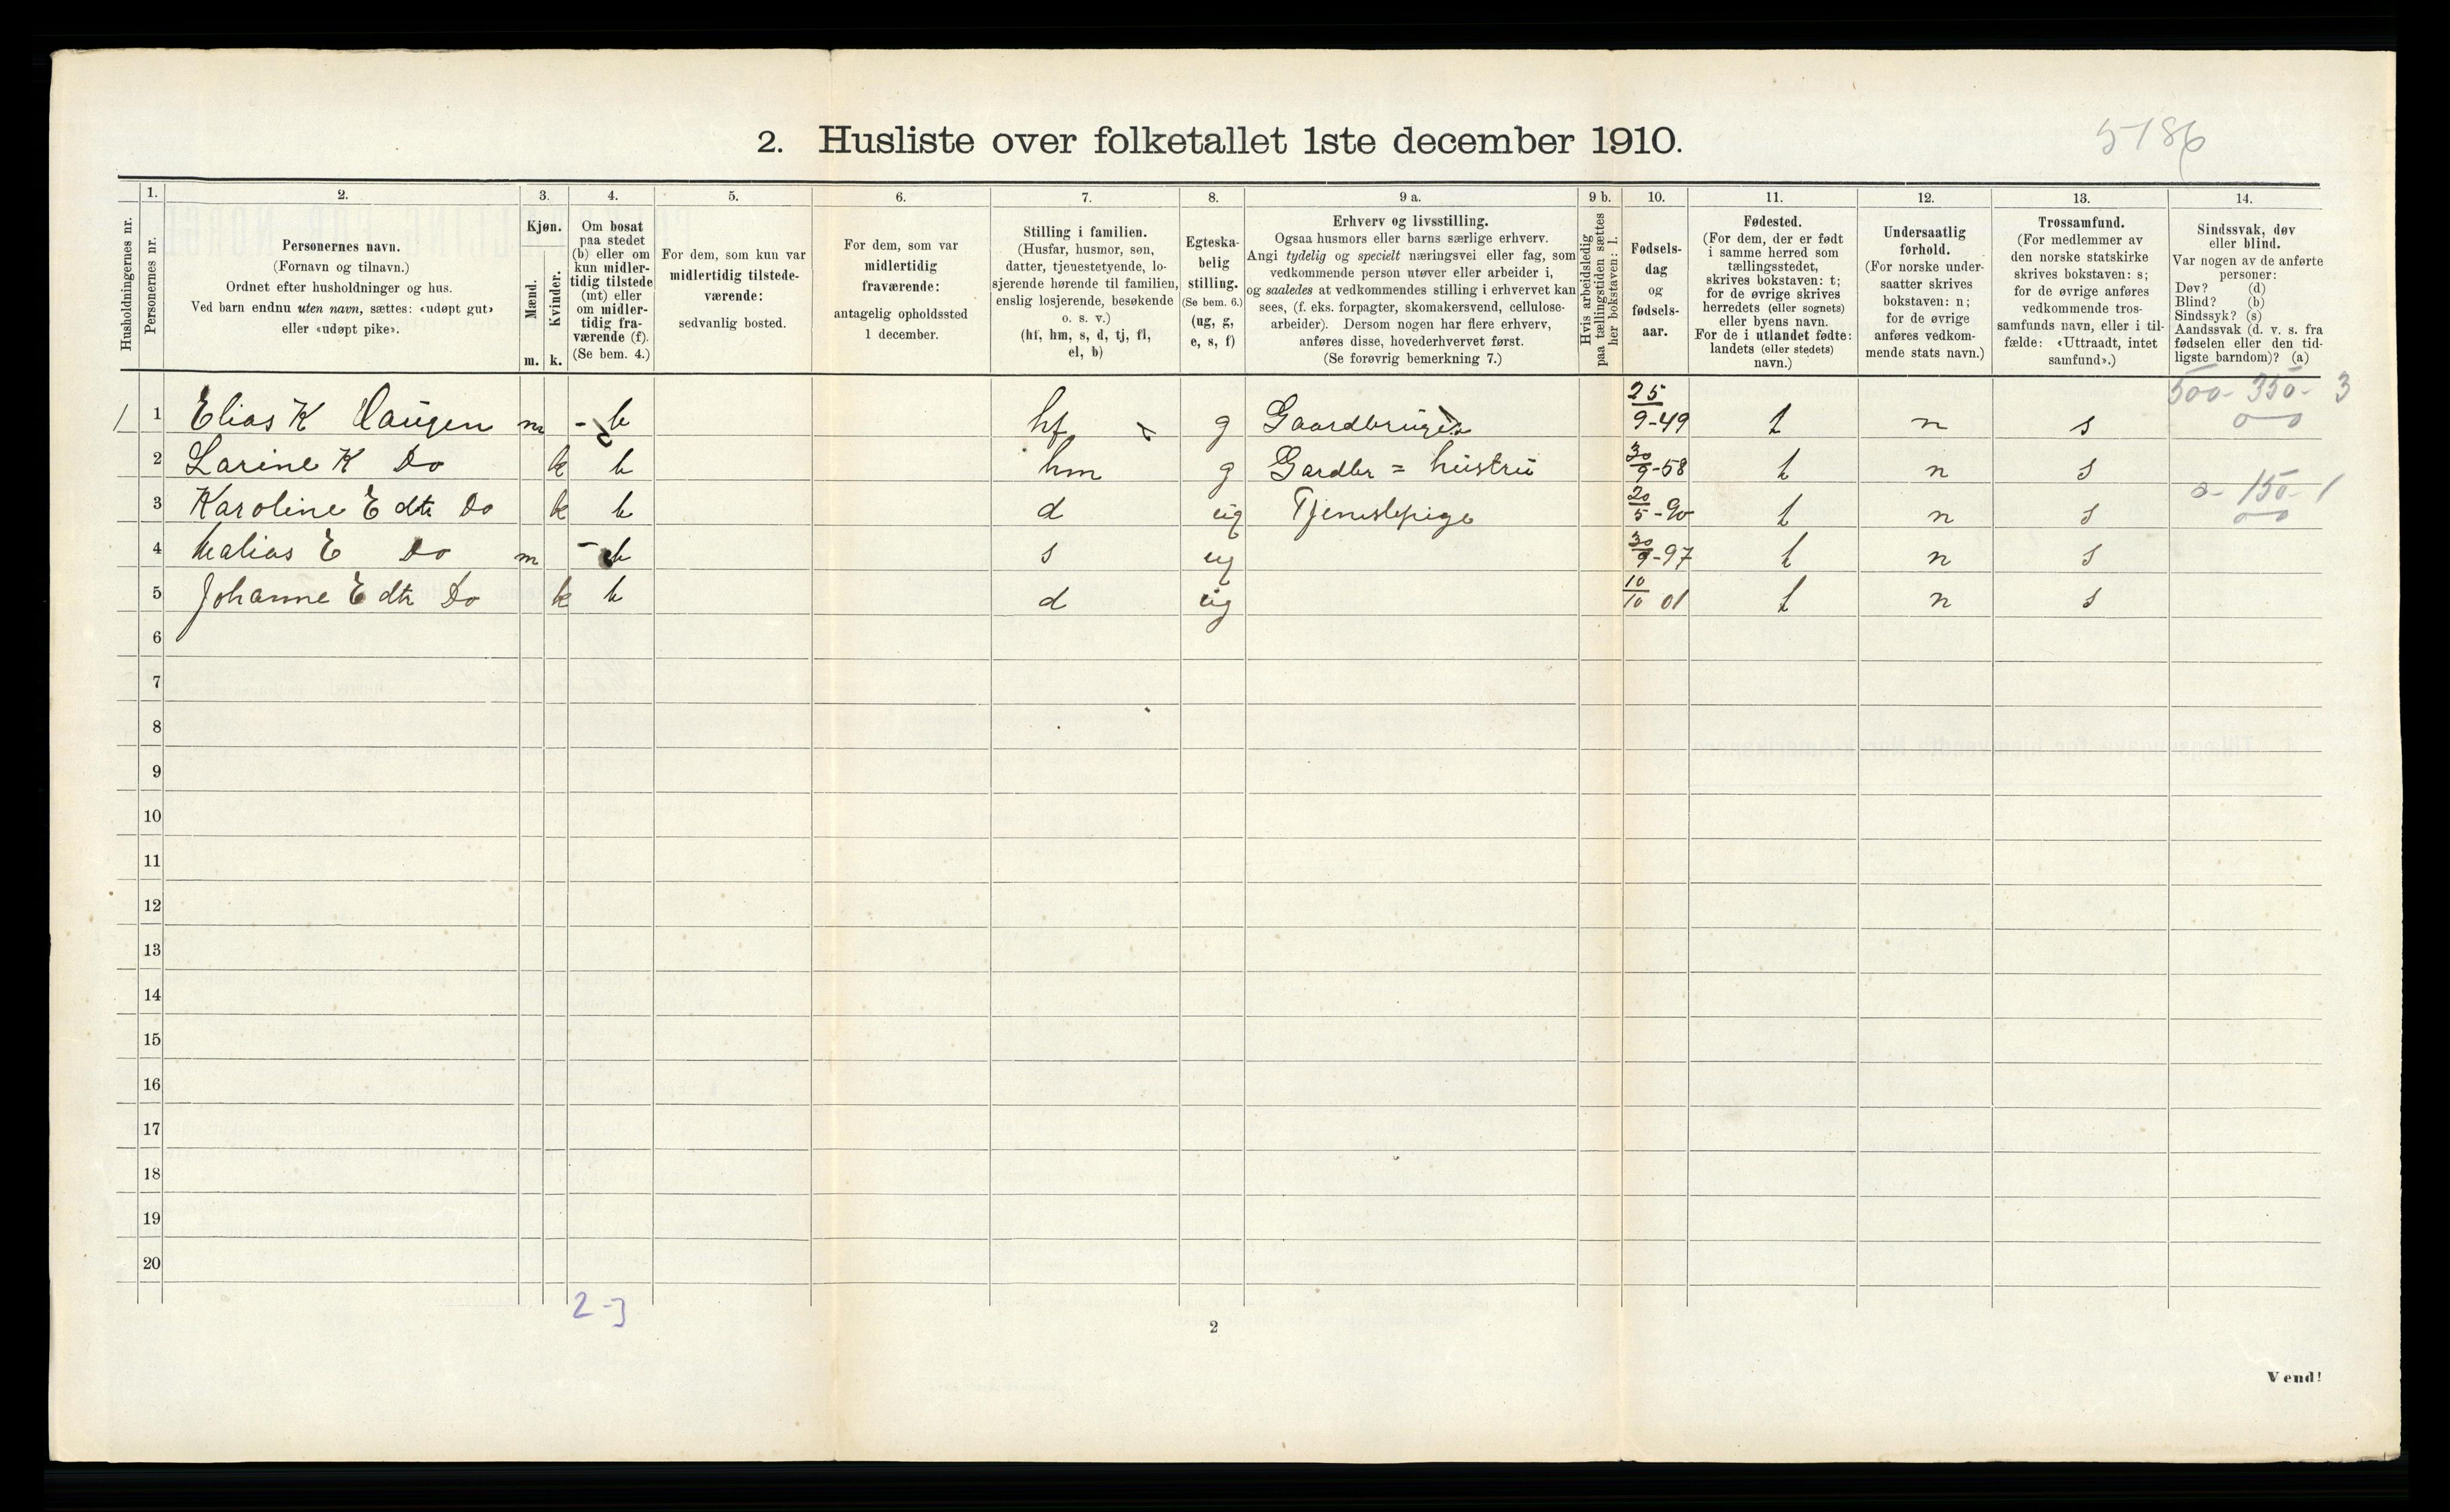 2. Husliste over folketallet 1ste december 1910.
5186
Husholdningernes nr.
1.
Personernes nr.
2.
Personernes navn.
(Fornavn og tilnavn.)
Ordnet efter husholdninger og hus.
Ved barn endnu uten navn, sættes: «udøpt gut»
eller «udøpt pike».
3.
Kjøn.
Mænd.
Kvinder.
m. k.
4.
Om bosat
paa stedet
(b) eller om
kun midler-
tidig tilstede
(mt) eller
om midler-
tidig fra-
værende (f).
(Se bem. 4.)
5.
For dem, som kun var
midlertidig tilstede-
værende:
sedvanlig bosted.
6.
For dem, som var
midlertidig
fraværende:
antagelig opholdssted
1 december.
7.
Stilling i familien.
(Husfar, husmor, søn,
datter, tjenestetyende, lo-
sjerende hørende til familien,
enslig losjerende, besøkende
o. s. v.)
(hf, hm, s, d, tj, fl,
el, b)
8.
Egteska-
belig
stilling.
(Se bem. 6.)
(ug, g,
e, s, f)
9 a.
Erhverv og livsstilling.
Ogsaa husmors eller barns særlige erhverv.
Angi tydelig og specielt næringsvei eller fag, som
vedkommende person utøver eller arbeider i,
og saaledes at vedkommendes stilling i erhvervet kan
sees, (f. eks. forpagter, skomakersvend, cellulose-
arbeider). Dersom nogen har flere erhverv,
anføres disse, hovederhvervet først.
(Se forøvrig bemerkning 7.)
9 b.
Hvis arbeidsledig
paa tællingstiden sættes
her bokstaven: l.
10.
Fødsels-
dag
og
fødsels-
aar.
11.
Fødested.
(For dem, der er født
i samme herred som
tællingsstedet,
skrives bokstaven: t;
for de øvrige skrives
herredets (eller sognets)
eller byens navn.
For de i utlandet fødte:
landets (eller stedets)
navn.)
12.
Undersaatlig
forhold.
(For norske under-
saatter skrives
bokstaven: n;
for de øvrige
anføres vedkom-
mende stats navn.)
13.
Trossamfund.
(For medlemmer av
den norske statskirke
skrives bokstaven: s;
for de øvrige anføres
vedkommende tros-
samfunds navn, eller i til-
fælde: «Uttraadt, intet
samfund».)
14.
Sindssvak, døv
eller blind.
Var nogen av de anførte
personer:
Døv? (d)
Blind? (b)
Sindssyk? (s)
Aandssvak (d. v. s. fra
fødselen eller den tid-
ligste barndom)? (a)
500- 350- 3
1 1 Elias K Haugen m - b hf g Gaardbruger 25/9-49 t n s
2 Larine K Do k b hm g Gardbr = hustru 30/9-58 t n s
3 Karoline E dtr Do k b d ug Tjenestepige 20/5-90 t n s 150- 1
4 Malias E Do m - b s ug 30/9-97 t n s
5 Johanne E dtr Do k b d ug 10/10 01 t n s
6
7
8
9
10
11
12
13
14
15
16
17
18
19
20
2-3
2
Vend!